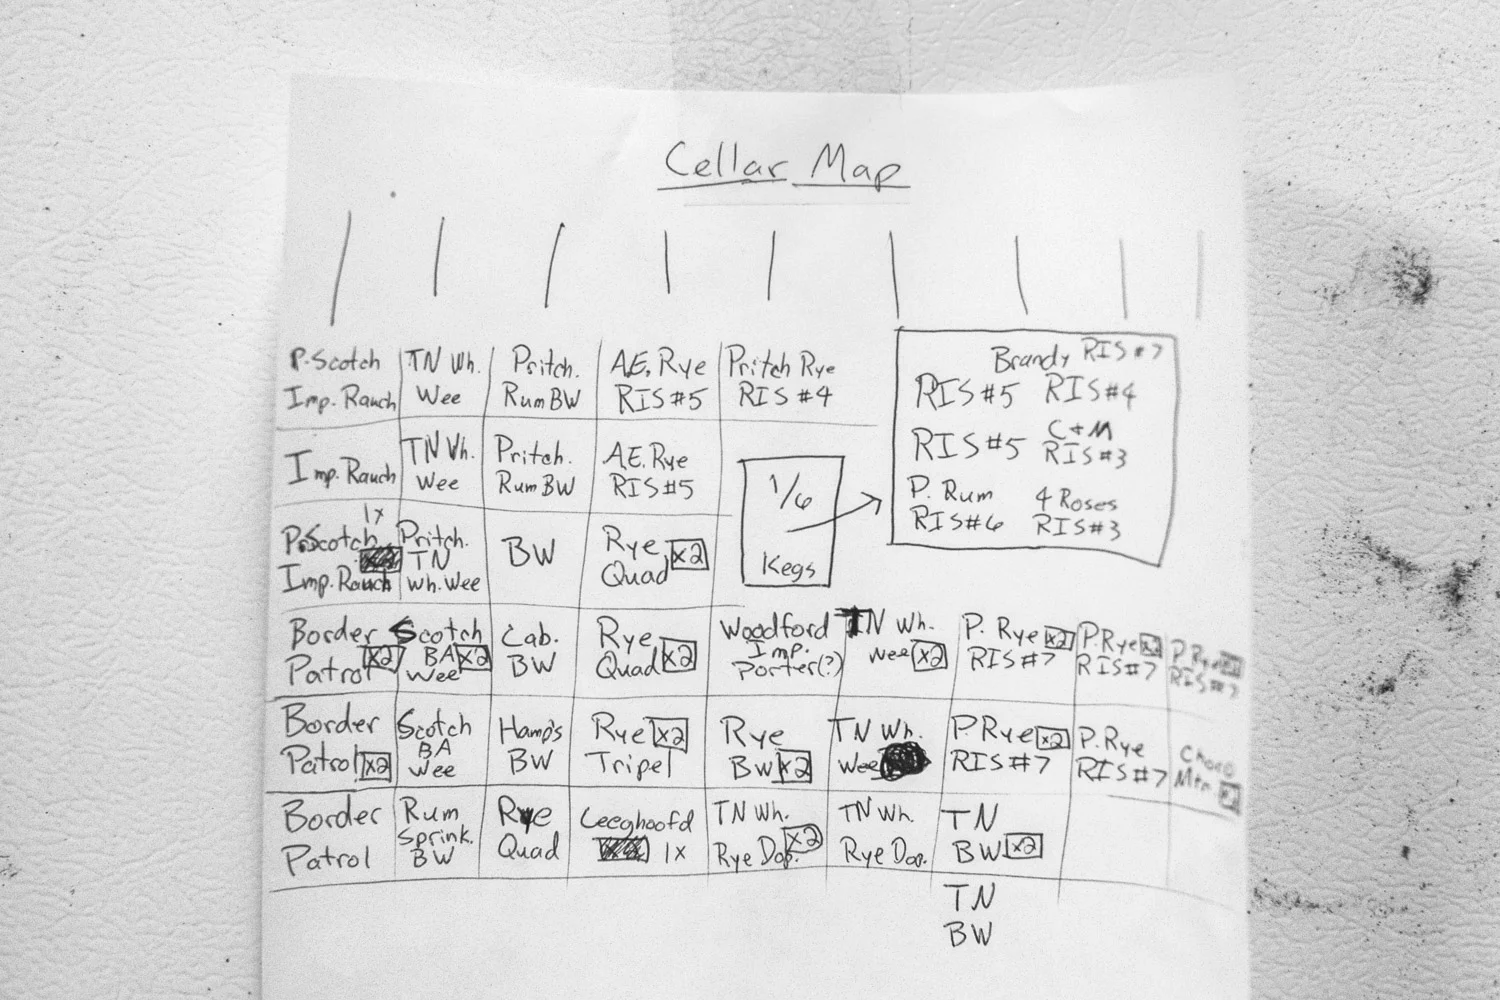 Cellar Map
P. Scotch
Imp. Rauch
TN Wh.
Wee
Pritch.
Rum BW
A.E. Rye
RIS #5
Pritch Rye
RIS #4
Brandy RIS #7
RIS #5 RIS #4
RIS #5 C+M
RIS #3
P. Rum
RIS #6
4 Roses
RIS #3
Imp. Rauch
TN Wh.
Wee
Pritch.
Rum BW
A.E. Rye
RIS #5
1/6
Kegs
1x
P. Scotch
Imp. Rauch
Pritch.
TN
Wh. Wee
BW
Rye x2
Quad
Border
Patrol x2
Scotch
BA x2
Wee
Cab.
BW
Rye
Quad x2
Woodford
Imp.
Porter(?)
TN Wh.
Wee x2
P. Rye x2
RIS #7
P. Rye x2
RIS #7
P. Rye
RIS #7
Border
Patrol x2
Scotch
BA
Wee
Hamp's
BW
Rye x2
Tripel
Rye
BW x2
TN Wh.
Wee
P. Rye x2
RIS #7
P. Rye
RIS #7
Choco
Mtn.
Border
Patrol
Rum
Sprink.
BW
Rye
Quad
Leeghoofd
1x
TN Wh.
Rye Dop. x2
TN Wh.
Rye Dop.
TN
BW x2
TN
BW